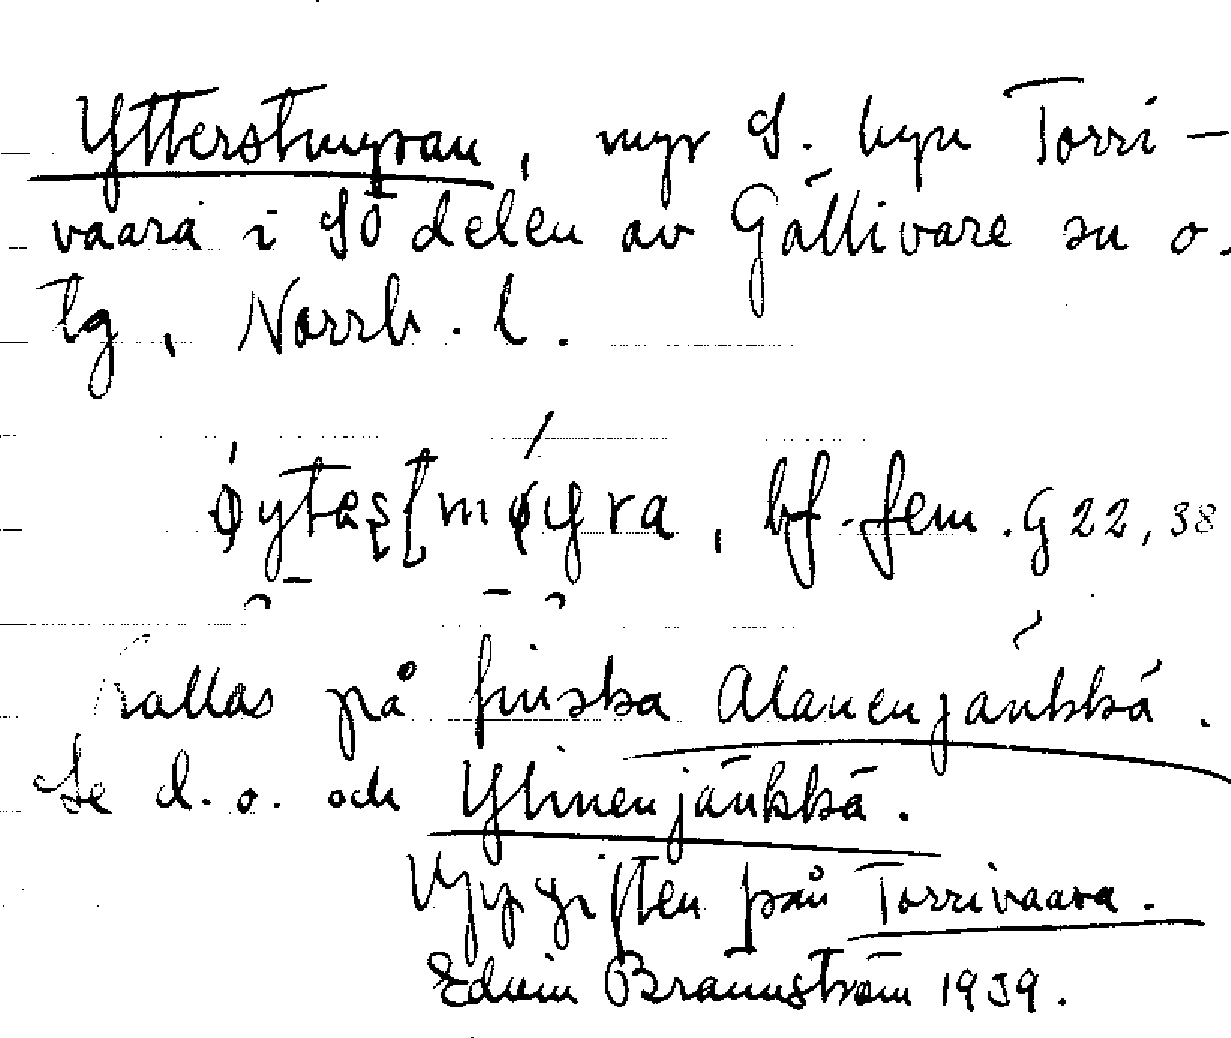 Ytterstmyran, myr S. byn Torri-
vaara i SÖ delen av Gällivare sn o.
tg, Norrb. l.
bf. fem. G 22, 38
Kallas på finska Alanenjänkkä.
Se d. o. och Ylinenjänkkä.
Uppgiften från Torrivaara.
Edvin Brännström 1939.